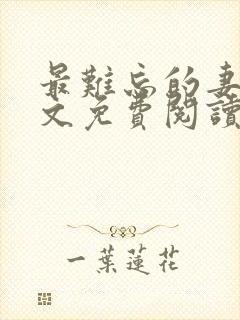 最難忘的妻
文免費閱讀
一葉蓮花